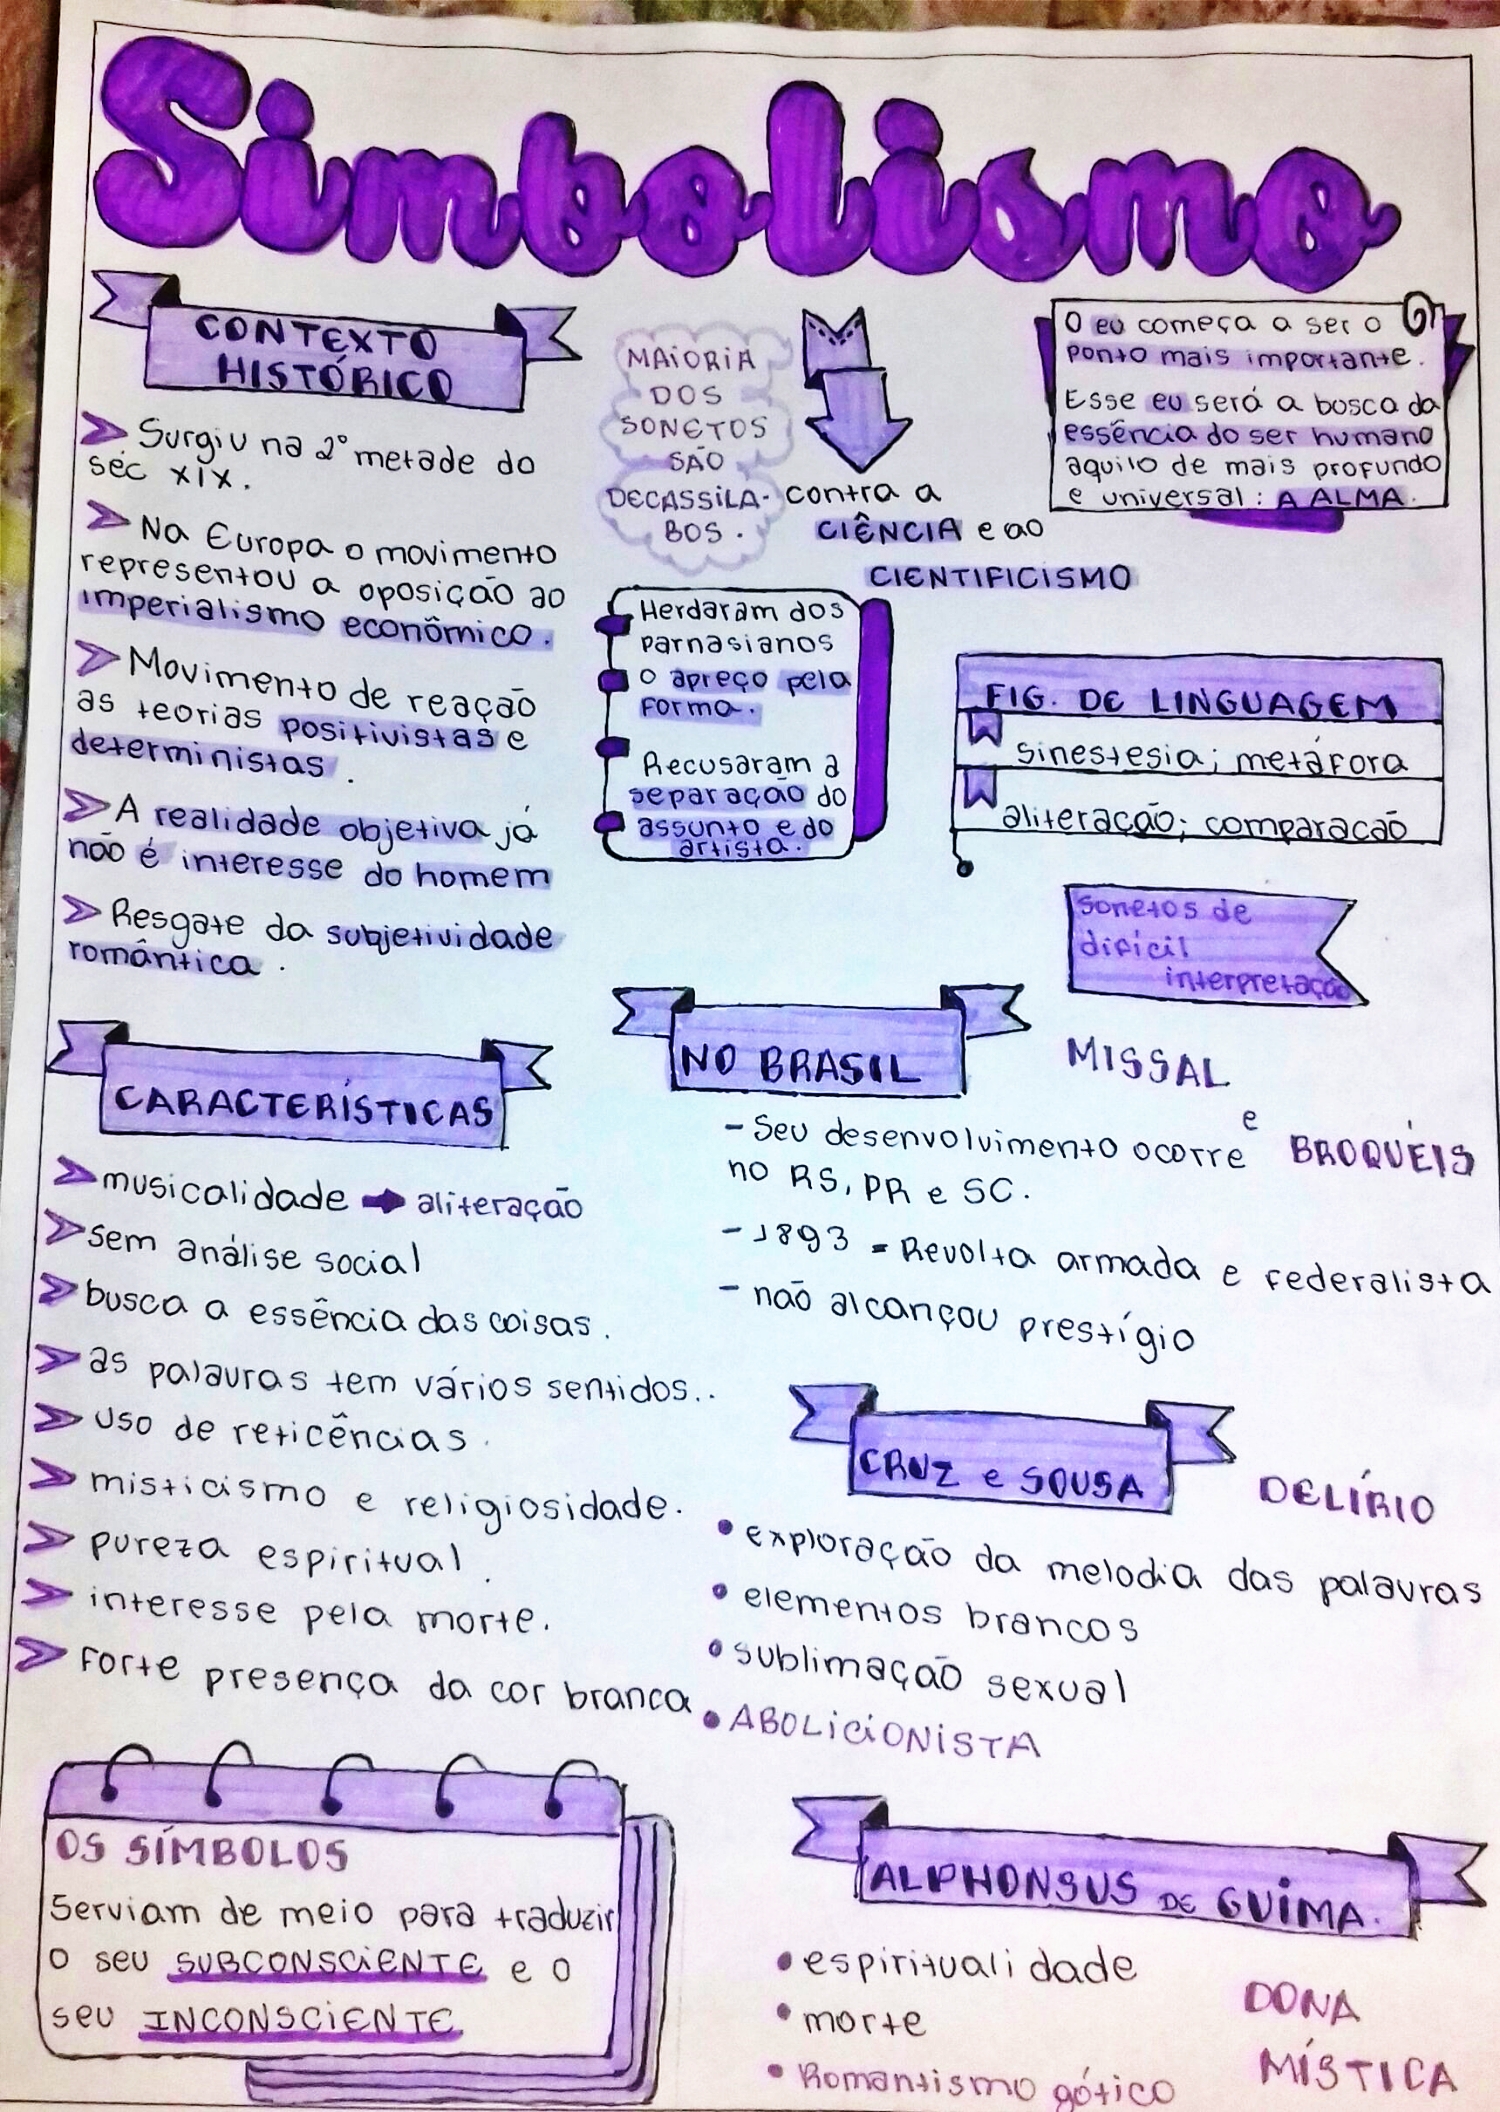 Simbolismo
CONTEXTO
HISTÓRICO
Surgiu na 2º metade do
séc XIX.
Na Europa o movimento
representou a oposição ao
imperialismo econômico.
Movimento de reação
as teorias positivistas e
deterministas.
A realidade objetiva já
não é interesse do homem
Resgate da subjetividade
romântica.
MAIORIA
DOS
SONETOS
SÃO
DECASSILA-
BOS.
contra a
CIÊNCIA e ao
CIENTIFICISMO
O eu começa a ser o
ponto mais importante.
Esse eu será a busca da
essência do ser humano
aquilo de mais profundo
e universal: A ALMA.
Herdaram dos
parnasianos
o apreço pela
forma.
Recusaram a
separação do
assunto e do
artista.
FIG. DE LINGUAGEM
sinestesia; metáfora
aliteração; comparacão
sonetos de
difícil
interpretação
CARACTERÍSTICAS
musicalidade ➡ aliteração
sem análise social
busca a essência das coisas.
as palavras tem vários sentidos..
uso de reticências.
misticismo e religiosidade.
pureza espiritual.
interesse pela morte.
forte presença da cor branca
NO BRASIL
MISSAL
e
BROQUÉIS
- Seu desenvolvimento ocorre
no RS, PR e SC.
- 1893 = Revolta armada e federalista
- não alcançou prestígio
CRUZ e SOUSA
DELÍRIO
• exploração da melodia das palavras
• elementos brancos
• sublimação sexual
• ABOLICIONISTA
OS SÍMBOLOS
Serviam de meio para traduzir
o seu SUBCONSCIENTE e o
seu INCONSCIENTE
ALPHONSUS DE GUIMA.
• espiritualidade
• morte
• Romantismo gótico
DONA
MÍSTICA